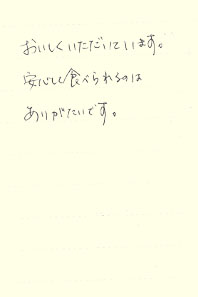 おいしくいただいています。
安心して食べられるのは
ありがたいです。